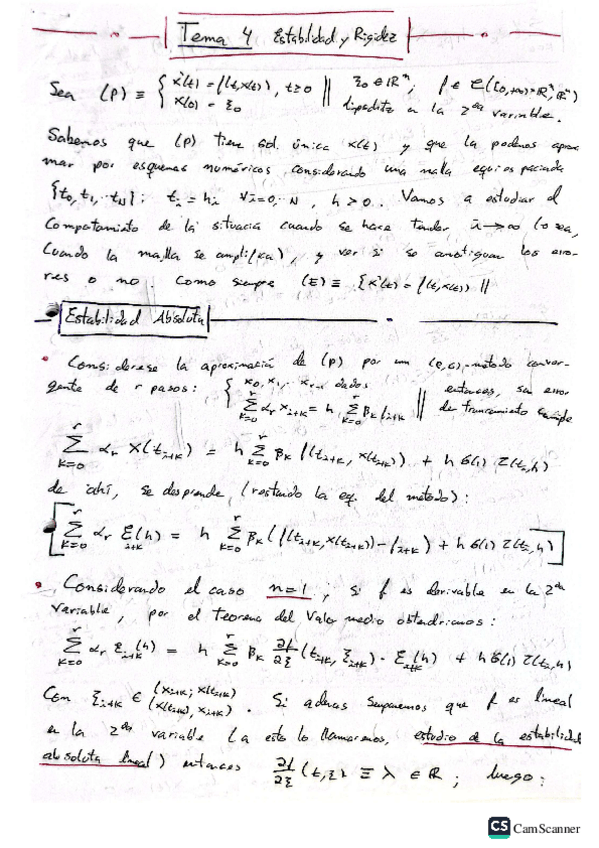 Tema 4 Estabilidad y Rigidez
Sea (P) ≡ { x'(t) = f(t,x(t)), t≥0 ‖ ξ₀ ∈ ℝⁿ; f ∈ C([0,+∞)×ℝⁿ,ℝⁿ)
x(0) = ξ₀ lipschitz en la 2ª variable.
Sabemos que (P) tiene sol. única x(t) y que la podemos aproxi
mar por esquemas numéricos, considerando una malla equiespaciada
{t₀,t₁,..t_N}; t_i = hi ∀i=0,..N, h>0. Vamos a estudiar el
Comportamiento de la situación cuando se hace tender i→∞ (o sea,
Cuando la malla se amplifica), y ver si se amortiguan los erro-
res o no. Como siempre (E) ≡ {x'(t) = f(t,x(t)) ‖
Estabilidad Absoluta
• Considerese la aproximación de (P) por un (ρ,σ)-método conver-
gente de r pasos: { x₀, x₁,.. x_{r-1} dados ‖ entonces, su error
Σ_{k=0}^r α_k x_{i+k} = h Σ_{k=0}^r β_k f_{i+k} de truncamiento cumple
Σ_{k=0}^r α_k x(t_{i+k}) = h Σ_{k=0}^r β_k f(t_{i+k}, x(t_{i+k})) + h σ(1) τ(t_i,h)
de ahí, se desprende (restando la eq. del método):
[ Σ_{k=0}^r α_k ε_{i+k}(h) = h Σ_{k=0}^r β_k (f(t_{i+k},x(t_{i+k})) - f_{i+k}) + h σ(1) τ(t_i,h) ]
• Considerando el caso n=1; si f es derivable en la 2ª
variable, por el Teorema del Valor medio obtendriamos:
Σ_{k=0}^r α_k ε_{i+k}(h) = h Σ_{k=0}^r β_k ∂f/∂ξ (t_{i+k}, ξ_{i+k}) · ε_{i+k}(h) + h σ(1) τ(t_i,h)
Con ξ_{i+k} ∈ (x_{i+k}; x(t_{i+k})) . Si ademas suponemos que f es lineal
(x(t_{i+k}), x_{i+k})
en la 2ª variable (a esto lo llamaremos, estudio de la estabilidad
absoluta lineal) entonces ∂f/∂ξ (t,ξ) ≡ λ ∈ ℝ; luego:
CS CamScanner